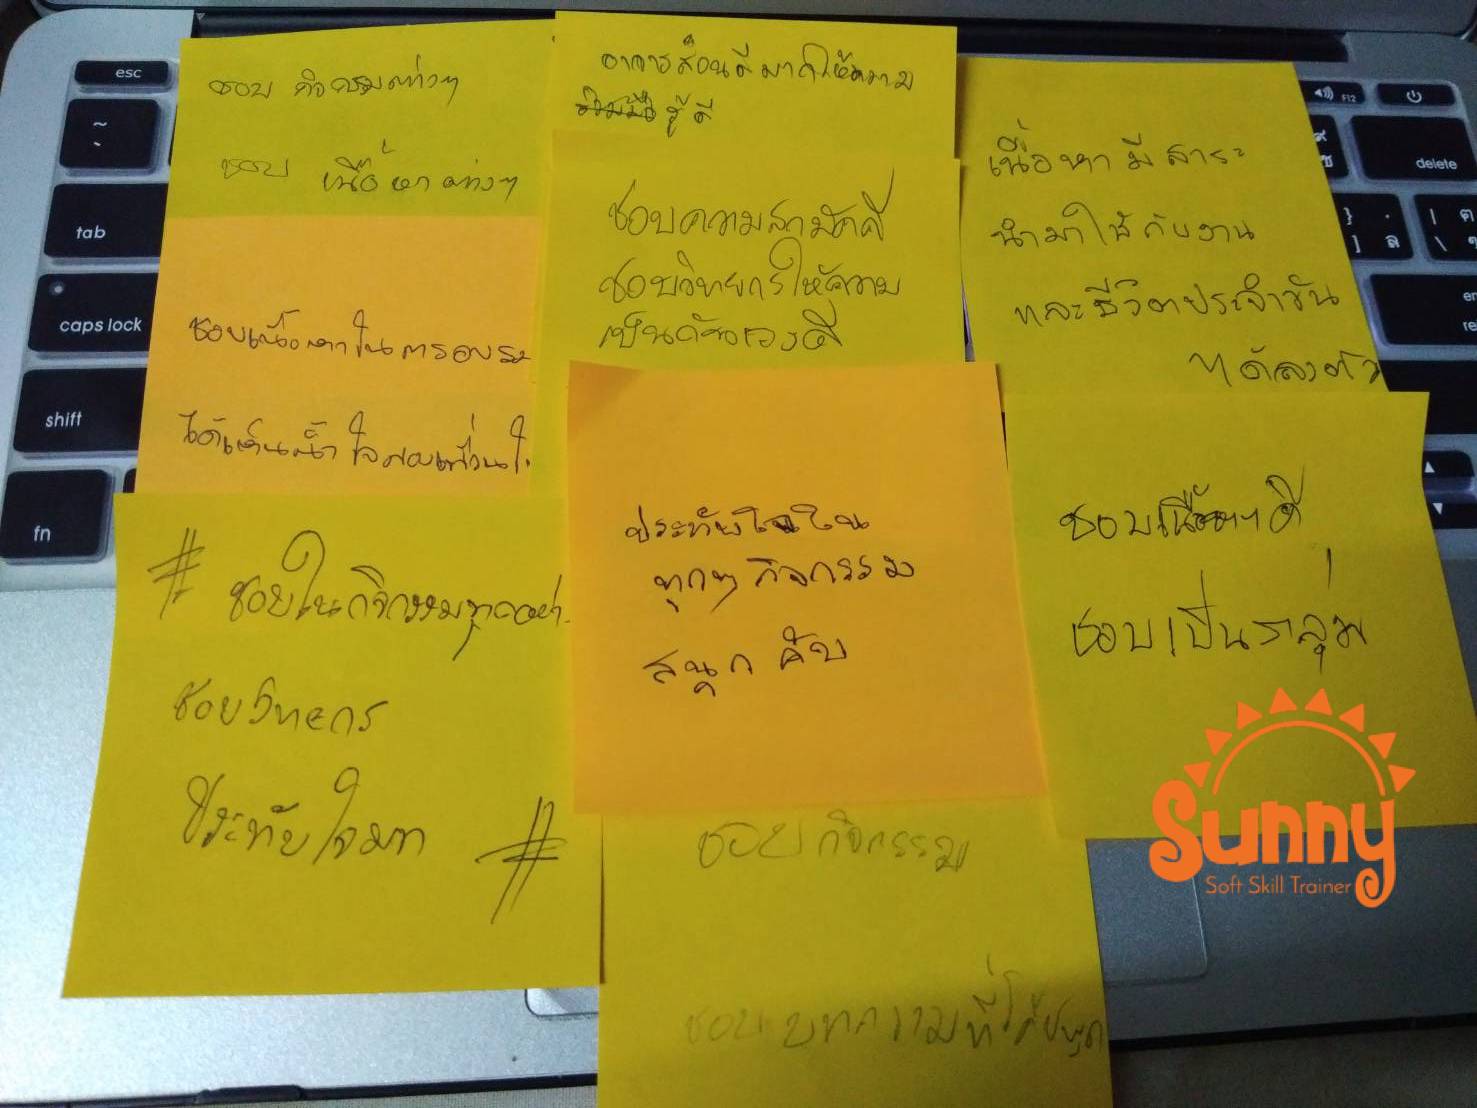 ชอบ กิจกรรมต่างๆ
ชอบ เนื้อหา ต่างๆ
อาจารสอนดีมากให้ความ
รู้ ดี
ชอบความสามัคคี
ชอบวิทยกรให้ความ
เป็นกันเองดี
เนื้อหา มี สาระ
นำมาใช้กับงาน
และชีวิตประจำวัน
ได้ลงตัว
ชอบเนื้อหาในการอบรม
ได้เห็นน้ำใจของเพื่อนใ
# ชอบในกิจกรรมทุกอย่า
ชอบวิทยกร
ประทับใจมาก #
ประทับใจใน
ทุกๆ กิจกรรม
สนุก คับ
ชอบเนื้อหาดี
ชอบเป็นกลุ่ม
ชอบ กิจกรรม
ชอบ บทความที่ได้พูด
Sunny
Soft Skill Trainer
esc
~
`
tab
caps lock
shift
fn
F12
delete